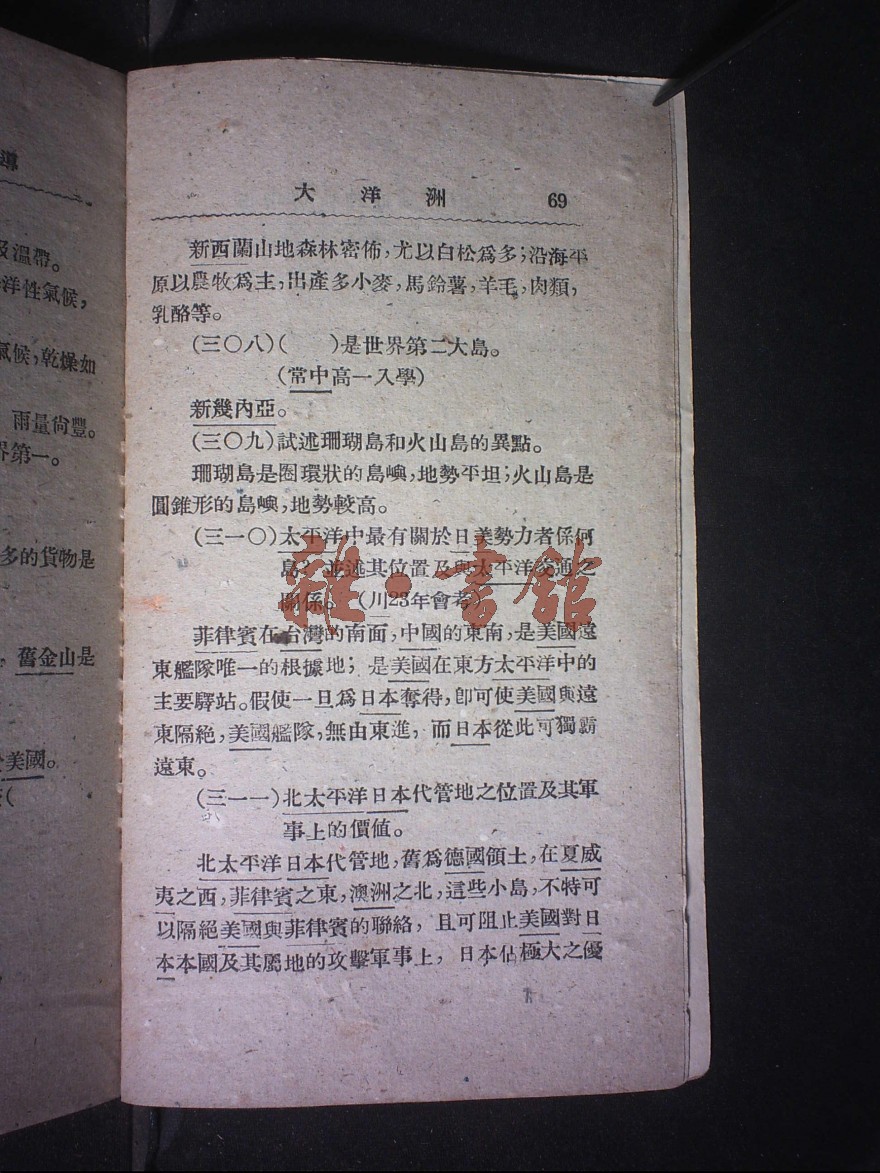 導
及溫帶。
洋性氣候，
氣候，乾燥如
雨量尙豐。
界第一。
多的貨物是
，舊金山是
美國。
（
大洋洲 69
新西蘭山地森林密佈，尤以白松爲多；沿海平
原以農牧爲主，出產多小麥，馬鈴薯，羊毛，肉類，
乳酪等。
（三〇八）（　）是世界第二大島。
（常中高一入學）
新幾內亞。
（三〇九）試述珊瑚島和火山島的異點。
珊瑚島是圈環狀的島嶼，地勢平坦；火山島是
圓錐形的島嶼，地勢較高。
（三一〇）太平洋中最有關於日美勢力者係何
島？並述其位置及與太平洋交通之
關係。（川23年會考）
菲律賓在台灣的南面，中國的東南，是美國遠
東艦隊唯一的根據地；是美國在東方太平洋中的
主要驛站。假使一旦爲日本奪得，卽可使美國與遠
東隔絕，美國艦隊，無由東進，而日本從此可獨霸
遠東。
（三一一）北太平洋日本代管地之位置及其軍
事上的價値。
北太平洋日本代管地，舊爲德國領土，在夏威
夷之西，菲律賓之東，澳洲之北，這些小島，不特可
以隔絕美國與菲律賓的聯絡，且可阻止美國對日
本本國及其屬地的攻擊軍事上，日本佔極大之優
雜·書館